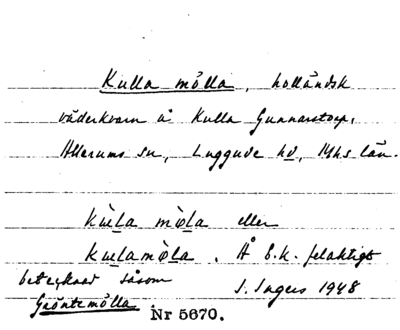 Kulla mölla, holländsk
väderkvarn å Kulla Gunnarstorp,
Allerums sn, Luggude hd, Mhs län.
mòla eller
. Å E.k. felaktigt
betecknad såsom
Gröntemölla
I. Ingers 1948
Nr 5670.